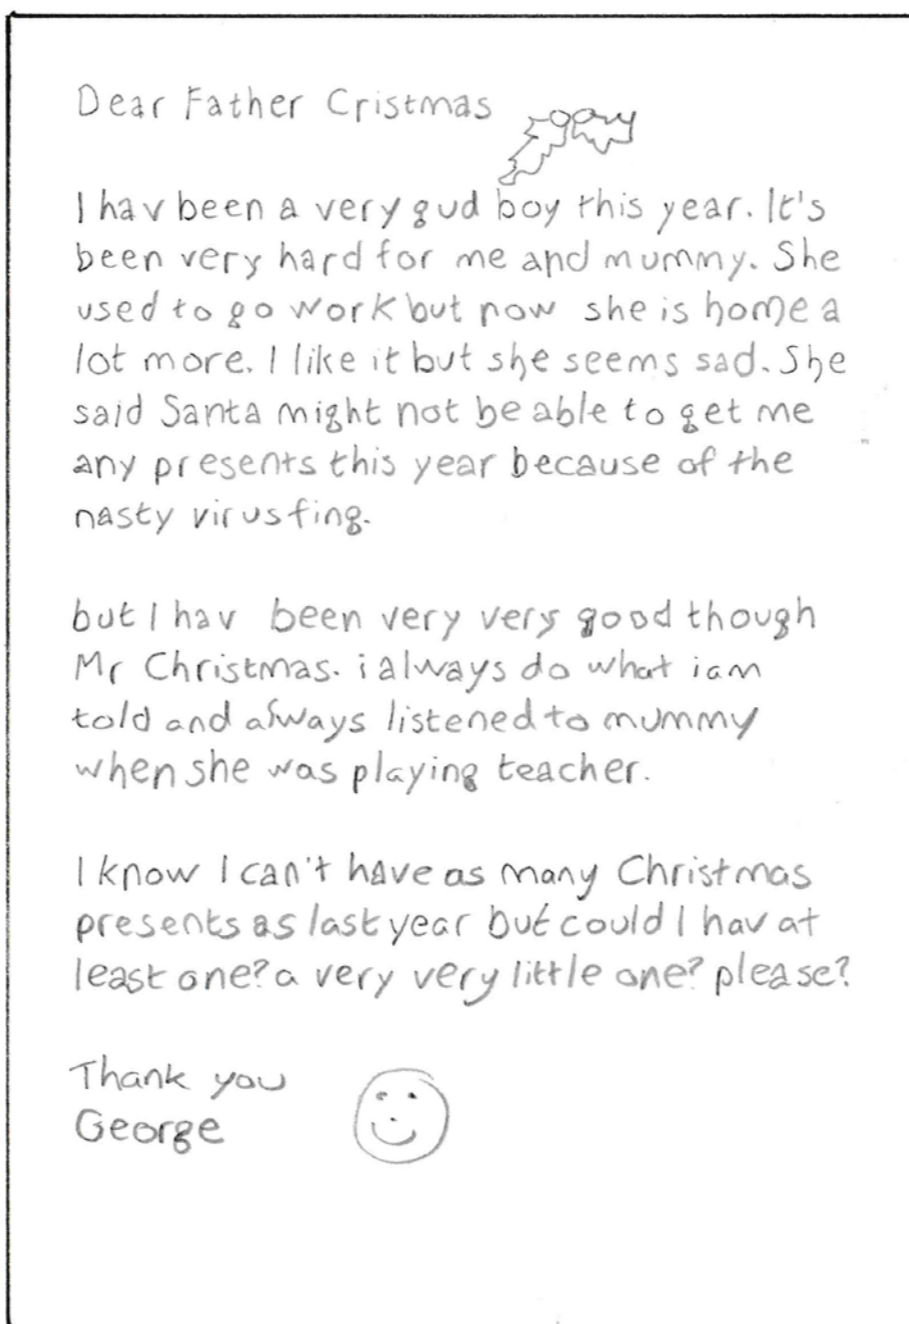 Dear Father Cristmas
I hav been a very gud boy this year. It's
been very hard for me and mummy. She
used to go work but now she is home a
lot more. I like it but she seems sad. She
said Santa might not be able to get me
any presents this year because of the
nasty virus fing.
but I hav been very very good though
Mr Christmas. i always do what i am
told and always listened to mummy
when she was playing teacher.
I know I can't have as many Christmas
presents as last year but could I hav at
least one? a very very little one? please?
Thank you
George